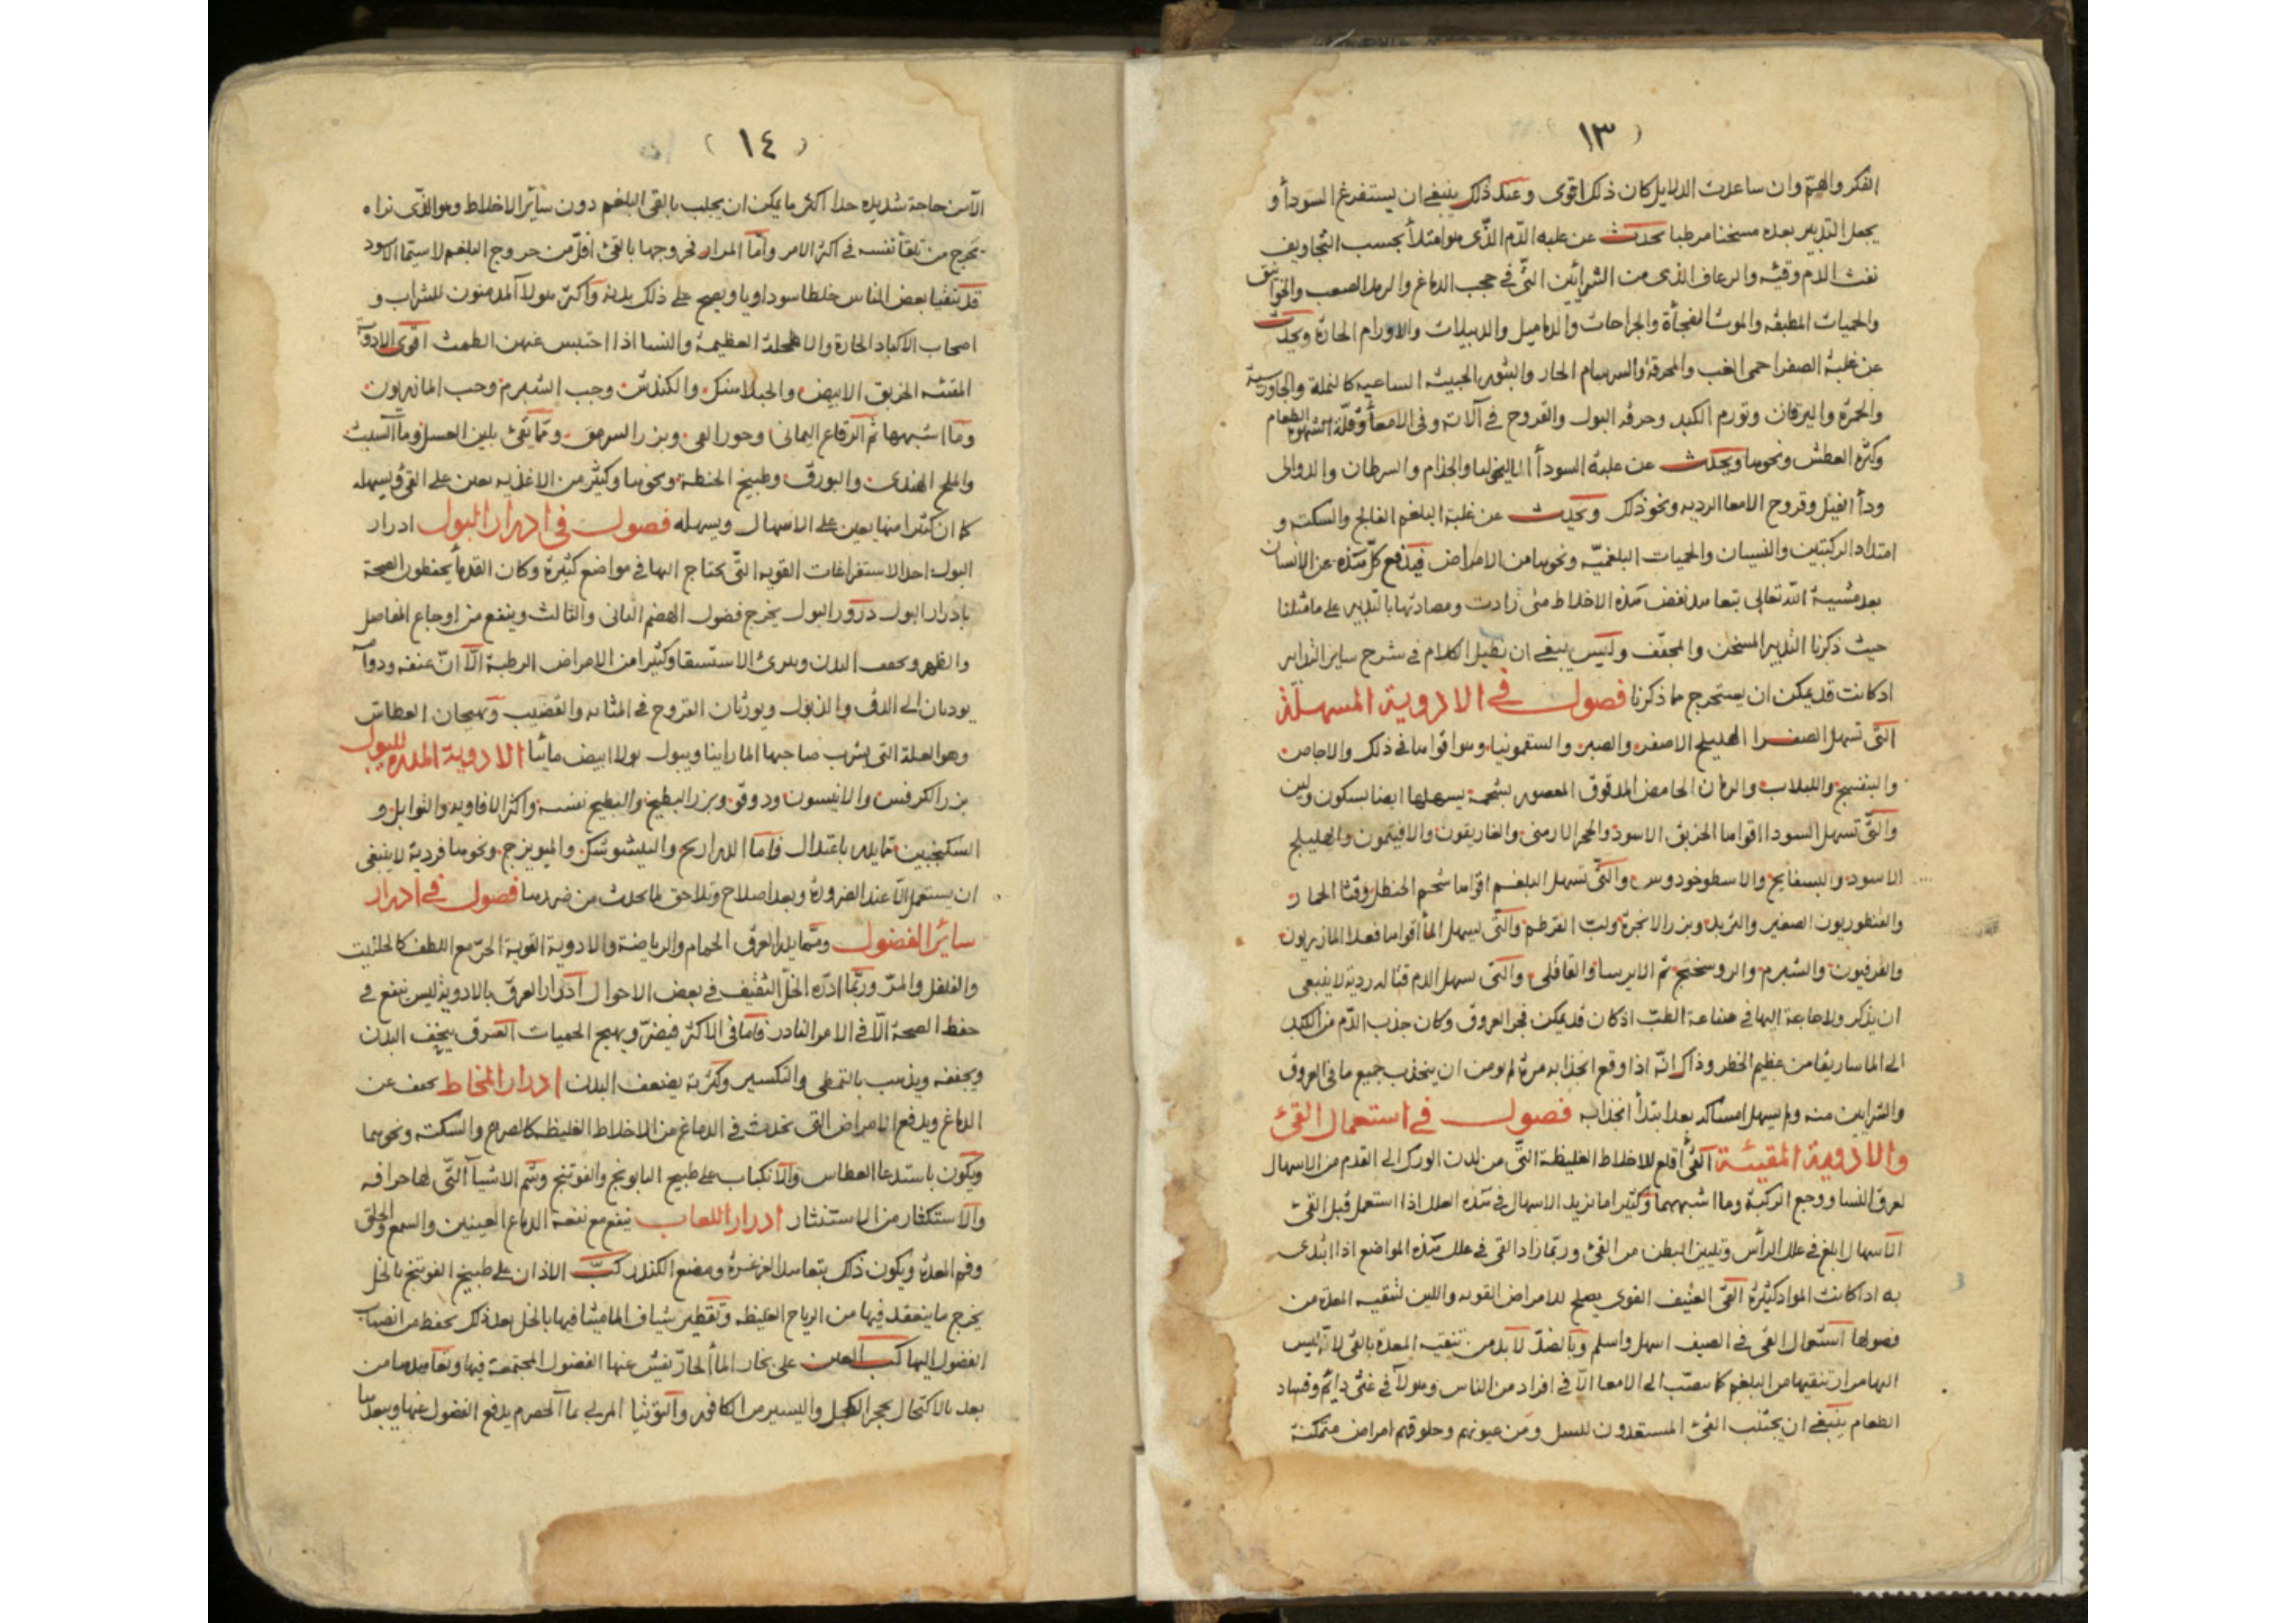 (١٣
الفكر والهم وان ساعدت الدلايل كان ذلك اقوى وعند ذلك ينبغى ان يستفرغ السودأ و
يجعل التدبير بعده مسخنا مرطبا يحدث عن غلبه الدم الذى هو امتلأ بحسب التجاويف
نفث الدم وقئه والرعاف الذى من الشرائين التى فى حجب الدماغ والرمد الصعب والخوانيق
والحميات المطبقه والموت الفجأة والجراحات والدماميل والدبيلات والاورام الحارة ويحدث
عن غلبة الصفرا حمى الغب والمحرقة والسرسام الحار والبثور الخبيثه الساعيه كالنملة والجاورسية
والحمرة واليرقان وتورم الكبد وحرقه البول والقروح فى آلاته وفى الامعأ وقلة الشهوة للطعام
وكثرة العطش ونحوها ويحدث عن غلبة السودأ الماليخوليا والجذام والسرطان والدوالى
ودأ الفيل وقروح الامعا الرديه ونحو ذلك ويحدث عن غلبة البلغم الفالج والسكته و
امتداد الركبتين والنسيان والحميات البلغميه ونحوها من الامراض فيدفع كل هذه عن الانسان
بعد مشيية الله تعالى بتعاهد نفض هذه الاخلاط متى زادت ومصادتها بالتدبير على ما مثلنا
حيث ذكرنا التدبير المسخن والمجفف وليس ينبغى ان نطيل الكلام فى شرح ساير التدابير
اذ كانت قد يمكن ان يستخرج مما ذكرنا فصول فى الادوية المسهلة
التى تسهل الصفرا الهليلج الاصفر والصبر والسقمونيا وهو اقواها فى ذلك والاجاص
والبنفسج واللبلاب والرمان الحامض المدقوق المعصور بشحمه يسهلها ايضا بسكون ولين
والتى تسهل السودا اقواها الخربق الاسود والحجر الارمنى والغاريقون والافيثمون والهليلج
الاسود والبسفايج والاسطوخودوس والتى تسهل البلغم اقواها شحم الحنظل وقثا الحمار
والقنطوريون الصغير والتربد وبزر الانجرة ولب القرطم والتى تسهل المأ اقواها فعلا المازريون
والفرفيون والشبرم والروسختج ثم الايرسا والقاقلى والتى تسهل الدم قتاله ردية لا ينبغى
ان يذكر ولا حاجة اليها فى صناعة الطب اذ كان قد يمكن فجر العروق وكان جذب الدم من الكبد
الى الماساريقا من عظيم الخطر وذاك انه اذا وقع انجذابه مرة لم يومن ان ينجذب جميع ما فى العروق
والشرايين منه ولم يسهل امساكه بعد ابتدأ انجذابه فصول فى استعمال القئ
والادوية المقيئة القئ أقلع للاخلاط الغليظة التى من لدن الورك الى القدم من الاسهال
لعرق النسا ووجع الركبة وما اشبههما وكثيرا ما نزيد الاسهال فى هذه العلل اذا استعمل قبل القئ
الاسهال ابلغ فى علل الرأس وتليين البطن من القئ وربما زاد القئ فى علل هذه المواضع اذا ابتدى
به اذا كانت المواد كثيرة القئ العنيف القوى يصلح للامراض القويه واللين لتنقيه المعدة من
فضولها استعمال القئ فى الصيف اسهل واسلم وبالضد لا بد من تنقيه المعدة بالقئ لانه ليس
اليها مرار تنقيها من البلغم كما ينصب الى الامعا الا فى افراد من الناس وهولآ فى غثى دايم وفساد
الطعام ينبغى ان يجتنب القئ المستعدون للسل ومن عيونهم وحلوقهم امراض متمكنة
(١٤)
الا من حاجة شديده جدا اكثر ما يمكن ان يجلب بالقئ البلغم دون سائر الاخلاط وهو الذى نراه
يخرج من تلقأ نفسه فى اكثر الامر وأما المرار فخروجها بالقئ اقل من خروج البلغم لا سيما الاسود
قد يتقيا بعض الناس خلطا سوداويا ويصح على ذلك بدنه واكثر هولا المدمنون للشراب و
اصحاب الاكباد الحارة والاطحلة العظيمة والنسا اذا احتبس عنهن الطمث اقوى الادوية
المقئه الخربق الابيض والجبلاهنك والكندش وحب الشبرم وحب الماذريون
وما اشبهها ثم الرقاع اليمانى وجوز القئ وبزر السرمق ومما يقئ بلين العسل وما الشبث
والملح الهندى والبورق وطبيخ الحنطة ونحوها وكثير من الاغذيه يعين على القئ ويسهله
كما ان كثيرا منها يعين على الاسهال ويسهله فصول فى ادرار البول ادرار
البول احد الاستفراغات القويه التى يحتاج اليها فى مواضع كثيرة وكان القدمأ يحفظون الصحة
بادرار البول درور البول يخرج فضول الهضم الثانى والثالث وينفع من اوجاع المفاصل
والظهر ويجفف البدن ويبرئ الاستسقا وكثيرا من الامراض الرطبة الا ان عنفه ودوامه
يوديان الى الدق والذبول ويورثان القروح فى المثانه والقضيب ويهيجان العطاش
وهو العلة التى يشرب صاحبها الما راينا ويبول بولا ابيض مائيا الادوية المدرة للبول
بزر الكرفس والانيسون ودوقو وبزر البطيخ والبطيخ نفسه واكثر الافاويه والتوابل و
السكنجبين مما يدر باعتدال فاما الذراريح والبلنشوشك والميويزج ونحوها فردية لا ينبغى
ان يستعمل الا عند الضرورة وبعد اصلاح وتلاحق لما يحدث من ضررها فصول فى ادرار
سائر الفضول ومما يدر العرق الحمام والرياضة والادوية القوية الحر مع اللطف كالحلتيت
والفلفل والمر وربما ادره الخل الثقيف فى بعض الاحوال ادرار العرق بالادوية ليس ينفع فى
حفظ الصحة الا فى الامر النادر فاما فى الاكثر فيضر ويهيج الحميات العرق يجفف البدن
ويجففه ويذهب بالتمطى والتكسير وكثرته يضعف البدن ادرار المخاط يخفف عن
الدماغ ويدفع الامراض التى تحدث فى الدماغ من الاخلاط الغليظة كالصرع والسكته ونحوهما
ويكون باستدعا العطاس والانكباب على طبيخ البابونج والفوتنج وشم الاشيآ التى لها حرافه
والاستكثار من الاستنثار ادرار اللعاب ينفع مع نفعه الدماغ العينين والسمع والحلق
وفم المعدة ويكون ذلك بتعاهد الغرغرة ومضغ الكندر كب الاذان على طبيخ الفوتنج بالخل
يخرج ما ينعقد فيها من الرياح الغليظه وتقطير شياف الماميثا فيها بالخل بعد ذلك يحفظ من انصباب
الفضول اليها كب العين على بخار المأ الحار يفش عنها الفضول المجتمعة فيها وتعاهدها من
بعد بالاكتحال بحجر الكحل واليسير من الكافور والتوتيا المربى بمأ الحصرم يدفع الفضول عنها ويبعدها